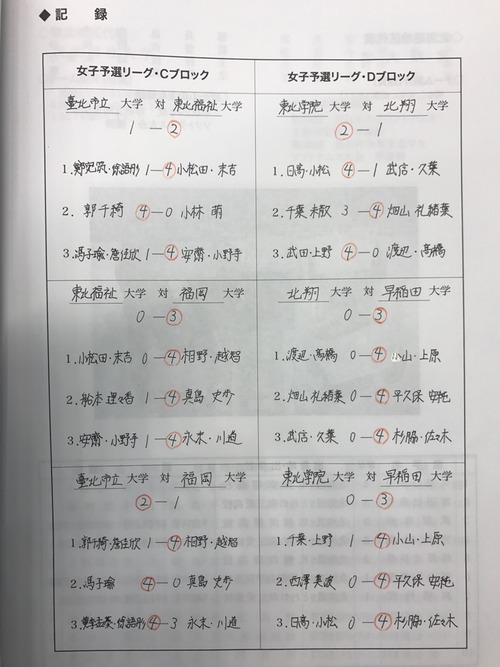 ◆記 録
女子予選リーグ・Cブロック
臺北市立 大学 対 東北福祉 大学
1 — 2
1. 1 — 4 小松田・末吉
2. 郭千綺 4 — 0 小林 萌
3. 馮子瑜・詹佳欣 1 — 4 安齋・小野寺
東北福祉 大学 対 福岡 大学
0 — 3
1. 小松田・末吉 0 — 4 相野・越智
2. 船本 1 — 4 真島 史歩
3. 安齋・小野寺 1 — 4 永末・川道
臺北市立 大学 対 福岡 大学
2 — 1
1. 郭千綺・詹佳欣 1 — 4 相野・越智
2. 馮子瑜 4 — 0 真島 史歩
3. 4 — 3 永末・川道
女子予選リーグ・Dブロック
東北学院 大学 対 北翔 大学
2 — 1
1. 日高・小松 4 — 1 武店・久葉
2. 千葉 3 — 4 畑山 礼緒葉
3. 武田・上野 4 — 0 渡辺・高橋
北翔 大学 対 早稲田 大学
0 — 3
1. 渡辺・高橋 0 — 4 小山・上原
2. 畑山 礼緒葉 0 — 4 平久保 安純
3. 武店・久葉 0 — 4 杉脇・佐々木
東北学院 大学 対 早稲田 大学
0 — 3
1. 千葉・上野 1 — 4 小山・上原
2. 西澤 美波 0 — 4 平久保 安純
3. 日高・小松 0 — 4 杉脇・佐々木